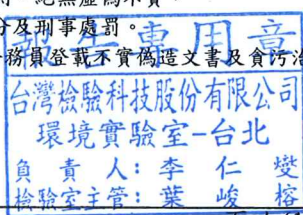 分及刑事處罰。
務員登載不實偽造文書及貪污治
專用章
台灣檢驗科技股份有限公司
環境實驗室-台北
負責人:李仁燮
檢驗室主管:葉峻榕